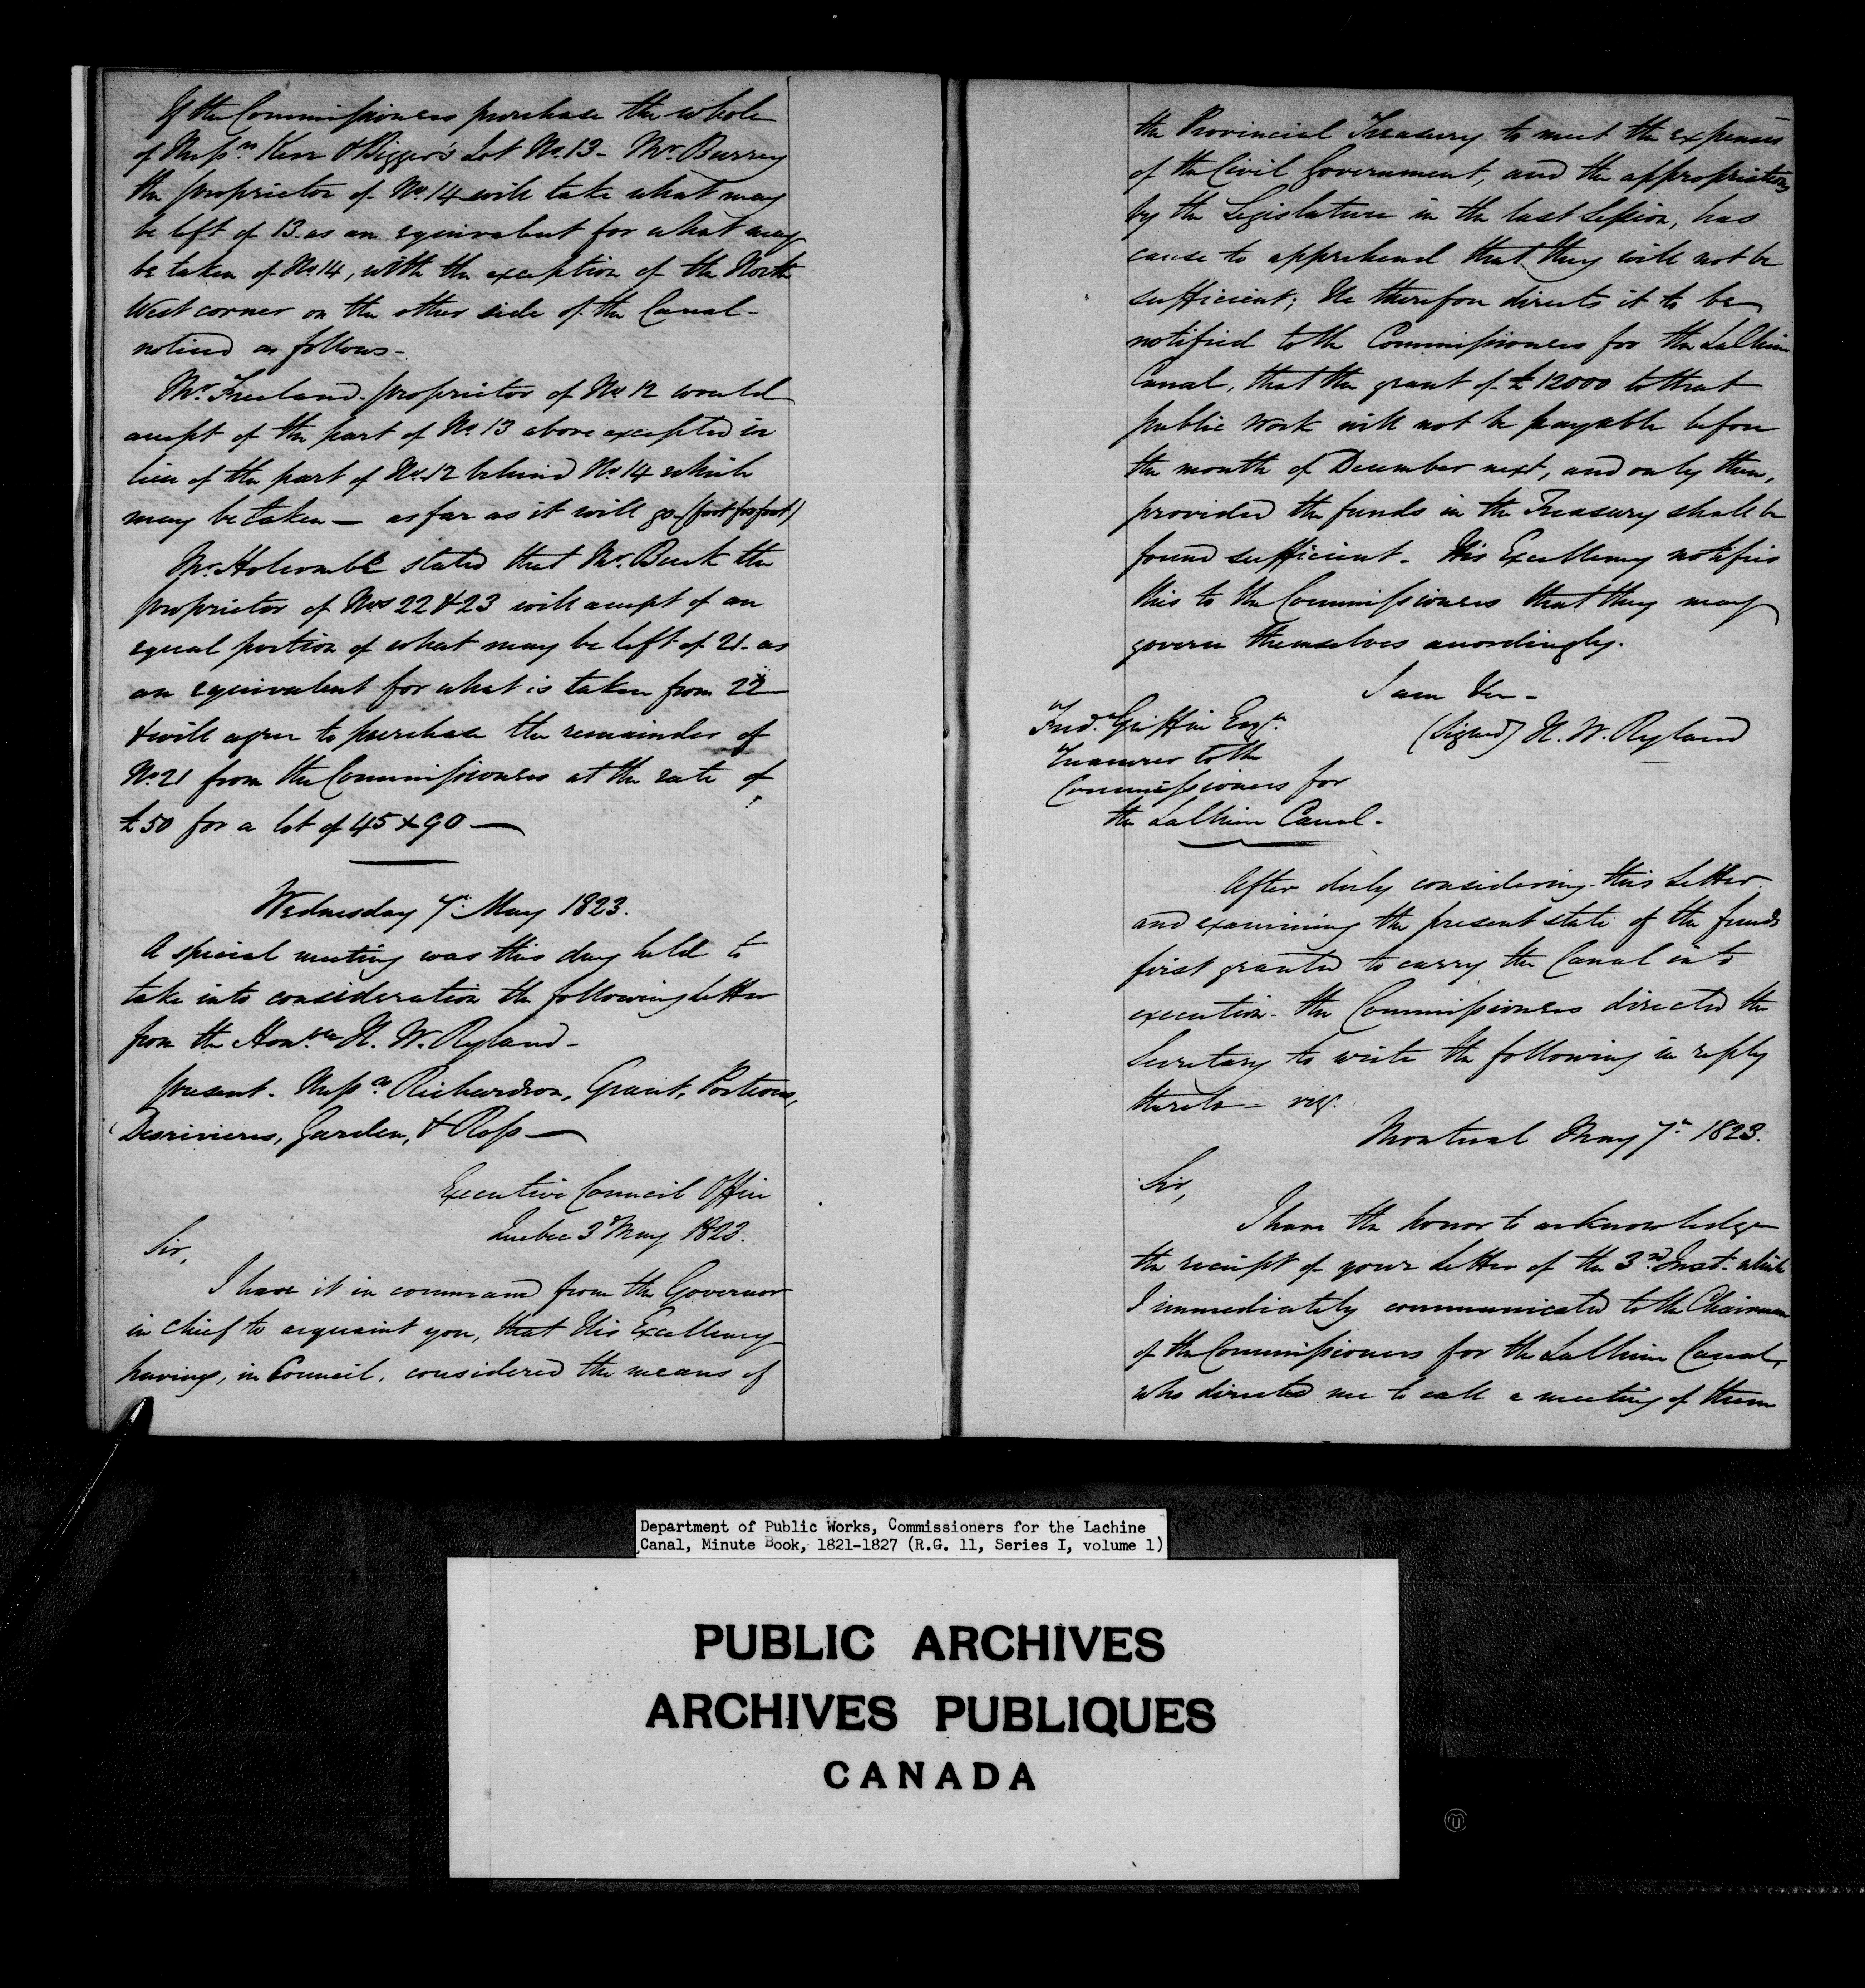 If the Commissioners purchase the whole
of Messrs Kerr & Bigger's Lot No. 13 - Mr. Burrey
the proprietor of No. 14 will take what may
be left of 13 as an equivalent for what may
be taken of No 14, with the exception of the North
West corner on the other side of the Canal -
noticed as follows -
Mr. Freeland - proprietor of No 12 would
accept of the part of No. 13 above excepted in
lieu of the part of No. 12 behind No. 14 which
may be taken — as far as it will go - (foot for foot)
Mr. Holcomb stated that Mr. Buck the
proprietor of Nos 22 & 23 will accept of an
equal portion of what may be left of 21 - as
an equivalent for what is taken from 22
& will agree to purchase the remainder of
No. 21 from the Commissioners at the rate of
£50 for a lot of 45 x 90 —
Wednesday 7th May 1823.
A special meeting was this day held to
take into consideration the following letter
from the Honble H. W. Ryland -
present - Messrs Richardson, Grant, Porteous,
Desrivieres, Garden, & Ross —
Executive Council Office
Quebec 3d May 1823.
Sir,
I have it in command from the Governor
in chief to acquaint you, that His Excellency
having, in Council, considered the means of
the Provincial Treasury to meet the expenses
of the Civil Government, and the appropriations
by the Legislature in the last Session, has
cause to apprehend that they will not be
sufficient; He therefore directs it to be
notified to the Commissioners for the La Chine
Canal, that the grant of £12000 to that
public work will not be payable before
the month of December next, and only then,
provided the funds in the Treasury shall be
found sufficient - His Excellency notifies
this to the Commissioners that they may
govern themselves accordingly.
I am &c -
(Signed) H. W. Ryland
Fred. Griffin Esqr.
Treasurer to the
Commissioners for
the La Chine Canal -
After duly considering this Letter
and examining the present state of the funds
first granted to carry the Canal into
execution - the Commissioners directed the
Secretary to write the following in reply
thereto - viz.
Montreal May 7th 1823.
Sir,
I have the honor to acknowledge
the receipt of your Letter of the 3rd Inst. which
I immediately communicated to the Chairman
of the Commissioners for the La Chine Canal,
who directed me to call a meeting of them
Department of Public Works, Commissioners for the Lachine
Canal, Minute Book, 1821-1827 (R.G. 11, Series I, volume 1)
PUBLIC ARCHIVES
ARCHIVES PUBLIQUES
CANADA